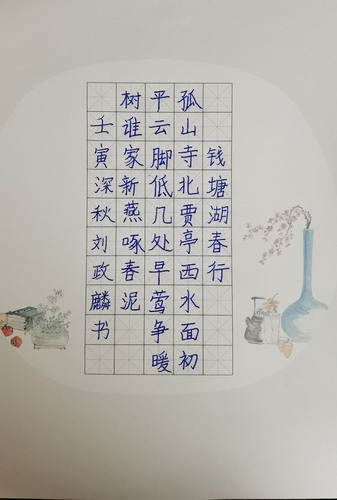 钱塘湖春行
孤山寺北贾亭西水面初
平云脚低几处早莺争暖
树谁家新燕啄春泥
壬寅深秋刘政麟书